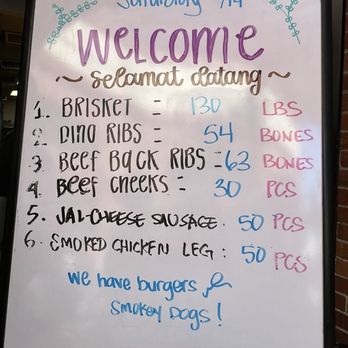 Saturday 7/9
WELCOME
~ Selamat datang ~
1. BRISKET = 130 LBS
2. DINO RIBS = 54 BONES
3. BEEF BACK RIBS = 63 BONES
4. BEEF CHEEKS = 30 PCS
5. JAL-CHEESE SAUSAGE. 50 PCS
6. SMOKED CHICKEN LEG : 50 PCS
We have burgers &
SMOKEY DOGS !